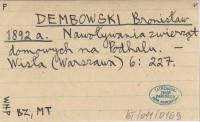 F
DEMBOWSKI Bronisław
1892 a. Nawoływania zwierząt
domowych na Podhalu. –
Wisła (Warszawa) 6: 227.
BZ, MT